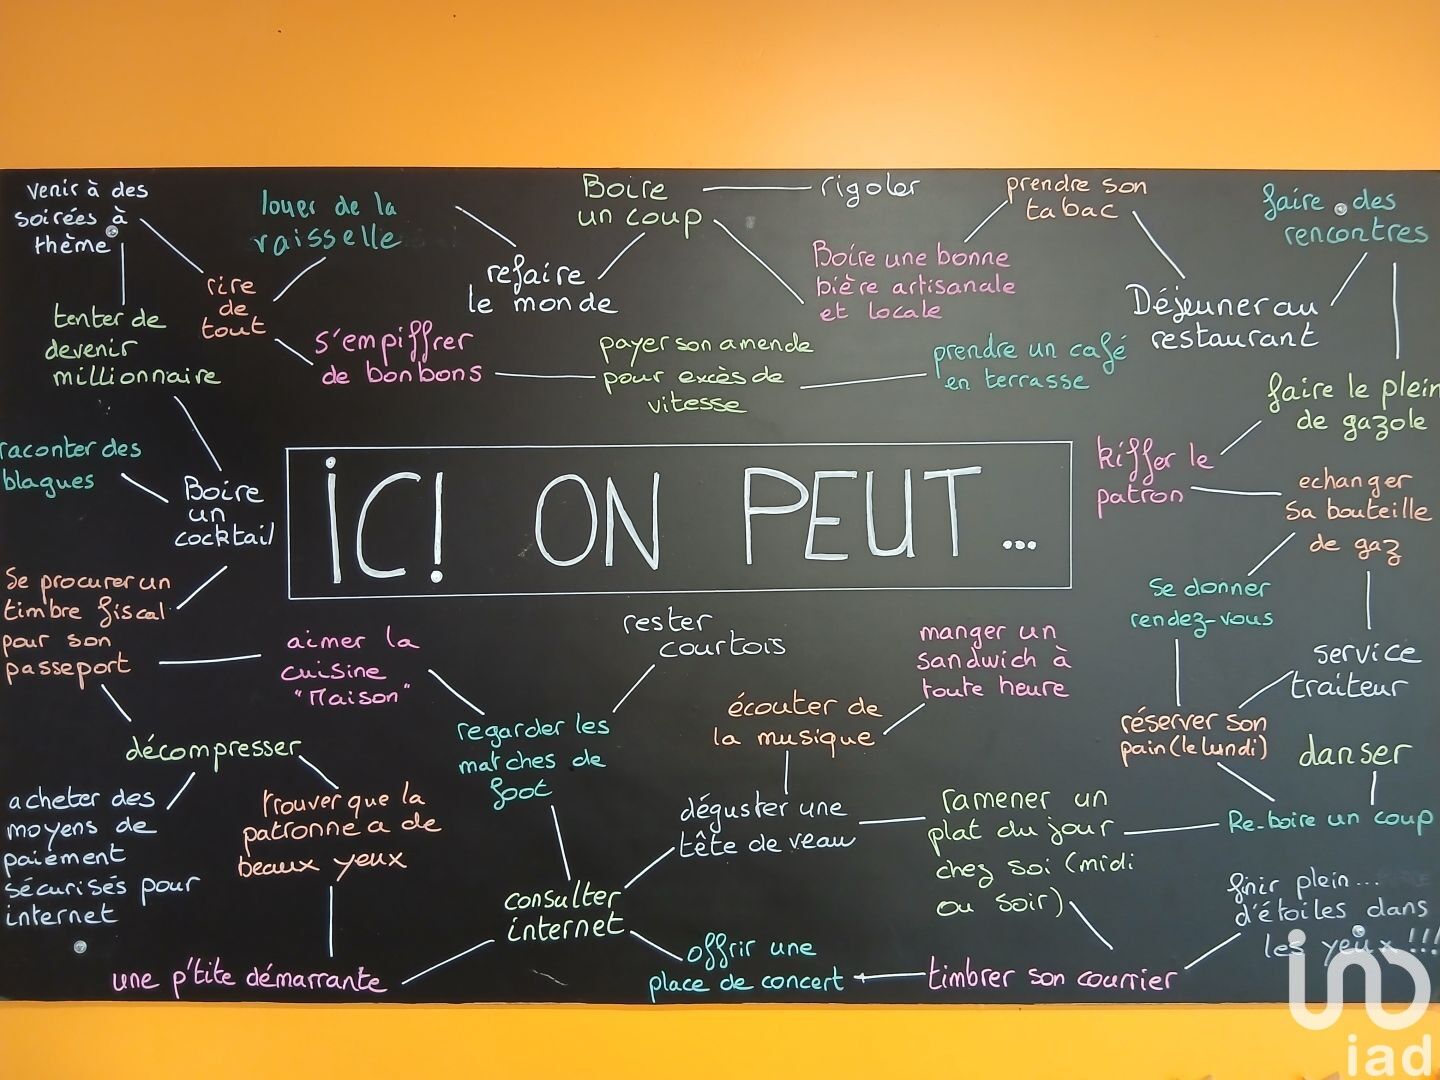 venir à des
soirées à
thème
louer de la
vaisselle
Boire
un coup
rigoler
prendre son
tabac
faire des
rencontres
rire
de
tout
refaire
le monde
Boire une bonne
bière artisanale
et locale
Déjeuner au
restaurant
tenter de
devenir
millionnaire
s'empiffrer
de bonbons
payer son amende
pour excès de
vitesse
prendre un café
en terrasse
faire le plein
de gazole
raconter des
blagues
Boire
un
cocktail
ici on peut...
kiffer le
patron
echanger
sa bouteille
de gaz
Se procurer un
timbre fiscal
pour son
passeport
aimer la
cuisine
"Maison"
rester
courtois
manger un
sandwich à
toute heure
se donner
rendez-vous
service
traiteur
décompresser
regarder les
matches de
foot
écouter de
la musique
réserver son
pain (le lundi)
danser
acheter des
moyens de
paiement
sécurisés pour
internet
trouver que la
patronne a de
beaux yeux
déguster une
tête de veau
ramener un
plat du jour
chez soi (midi
ou soir)
Re-boire un coup
consulter
internet
finir plein...
d'étoiles dans
les yeux !!!
une p'tite démarrante
offrir une
place de concert
timbrer son courrier
iad